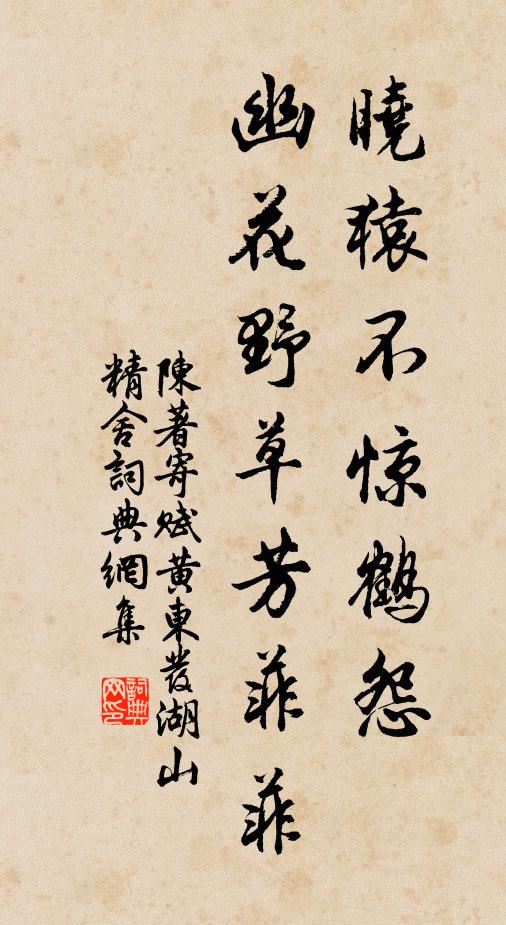 曉猿不惊鶴怨
幽花野草芳菲菲
陳著寄賦黃東發湖山
精舍詞典網集
詞典网印